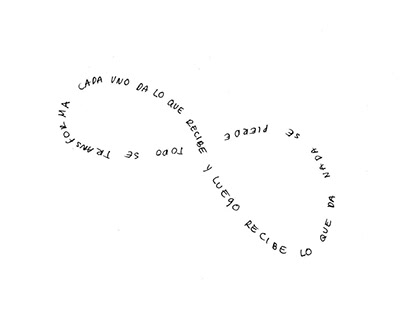 CADA UNO DA LO QUE RECIBE Y LUEGO RECIBE LO QUE DA NADA SE PIERDE TODO SE TRANSFORMA